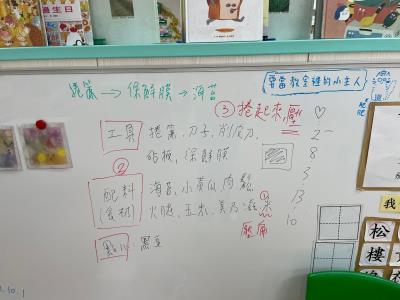 過生日
捲簾 → 保鮮膜 → 海苔
要當教室裡的小主人
③ 捲起來壓
工具 捲簾、刀子、削皮刀、
砧板、保鮮膜
②
配料(食材) 海苔、小黃瓜、肉鬆
火腿、玉米、美乃滋、米
①
壓扁
點心：黑豆
♡
2
8
3
13
10
我
松
樓
10.1